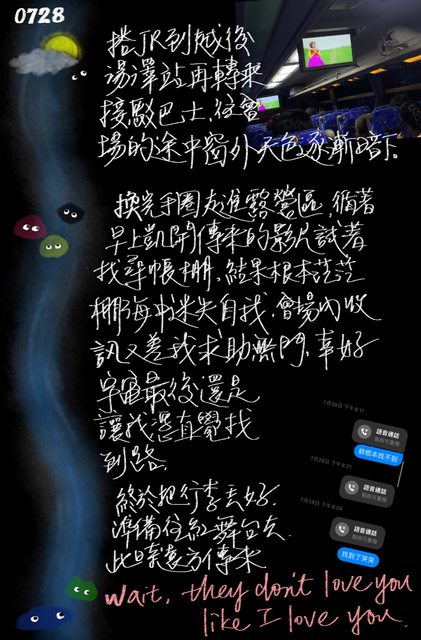 0728
搭JR到越後
湯澤站再轉乘
接駁巴士,往會
場的途中窗外天色逐漸暗下。
換完手圈走進露營區,循著
早上凱開傳來的影片試著
找尋帳棚,結果根本茫茫
棚海中迷失自我,會場內收
訊又差我求助無門,幸好
宇宙最後還是
讓我憑直覺找
到路。
終於把行李丟好,
準備往紅舞台去,
此時遠方傳來
7月28日 下午8:17
語音通話
點按可重撥
欸根本找不到
7月28日 下午8:21
語音通話
點按可重撥
7月28日 下午8:24
語音通話
點按可重撥
找到了哭哭
Wait, they don't love you
like I love you.